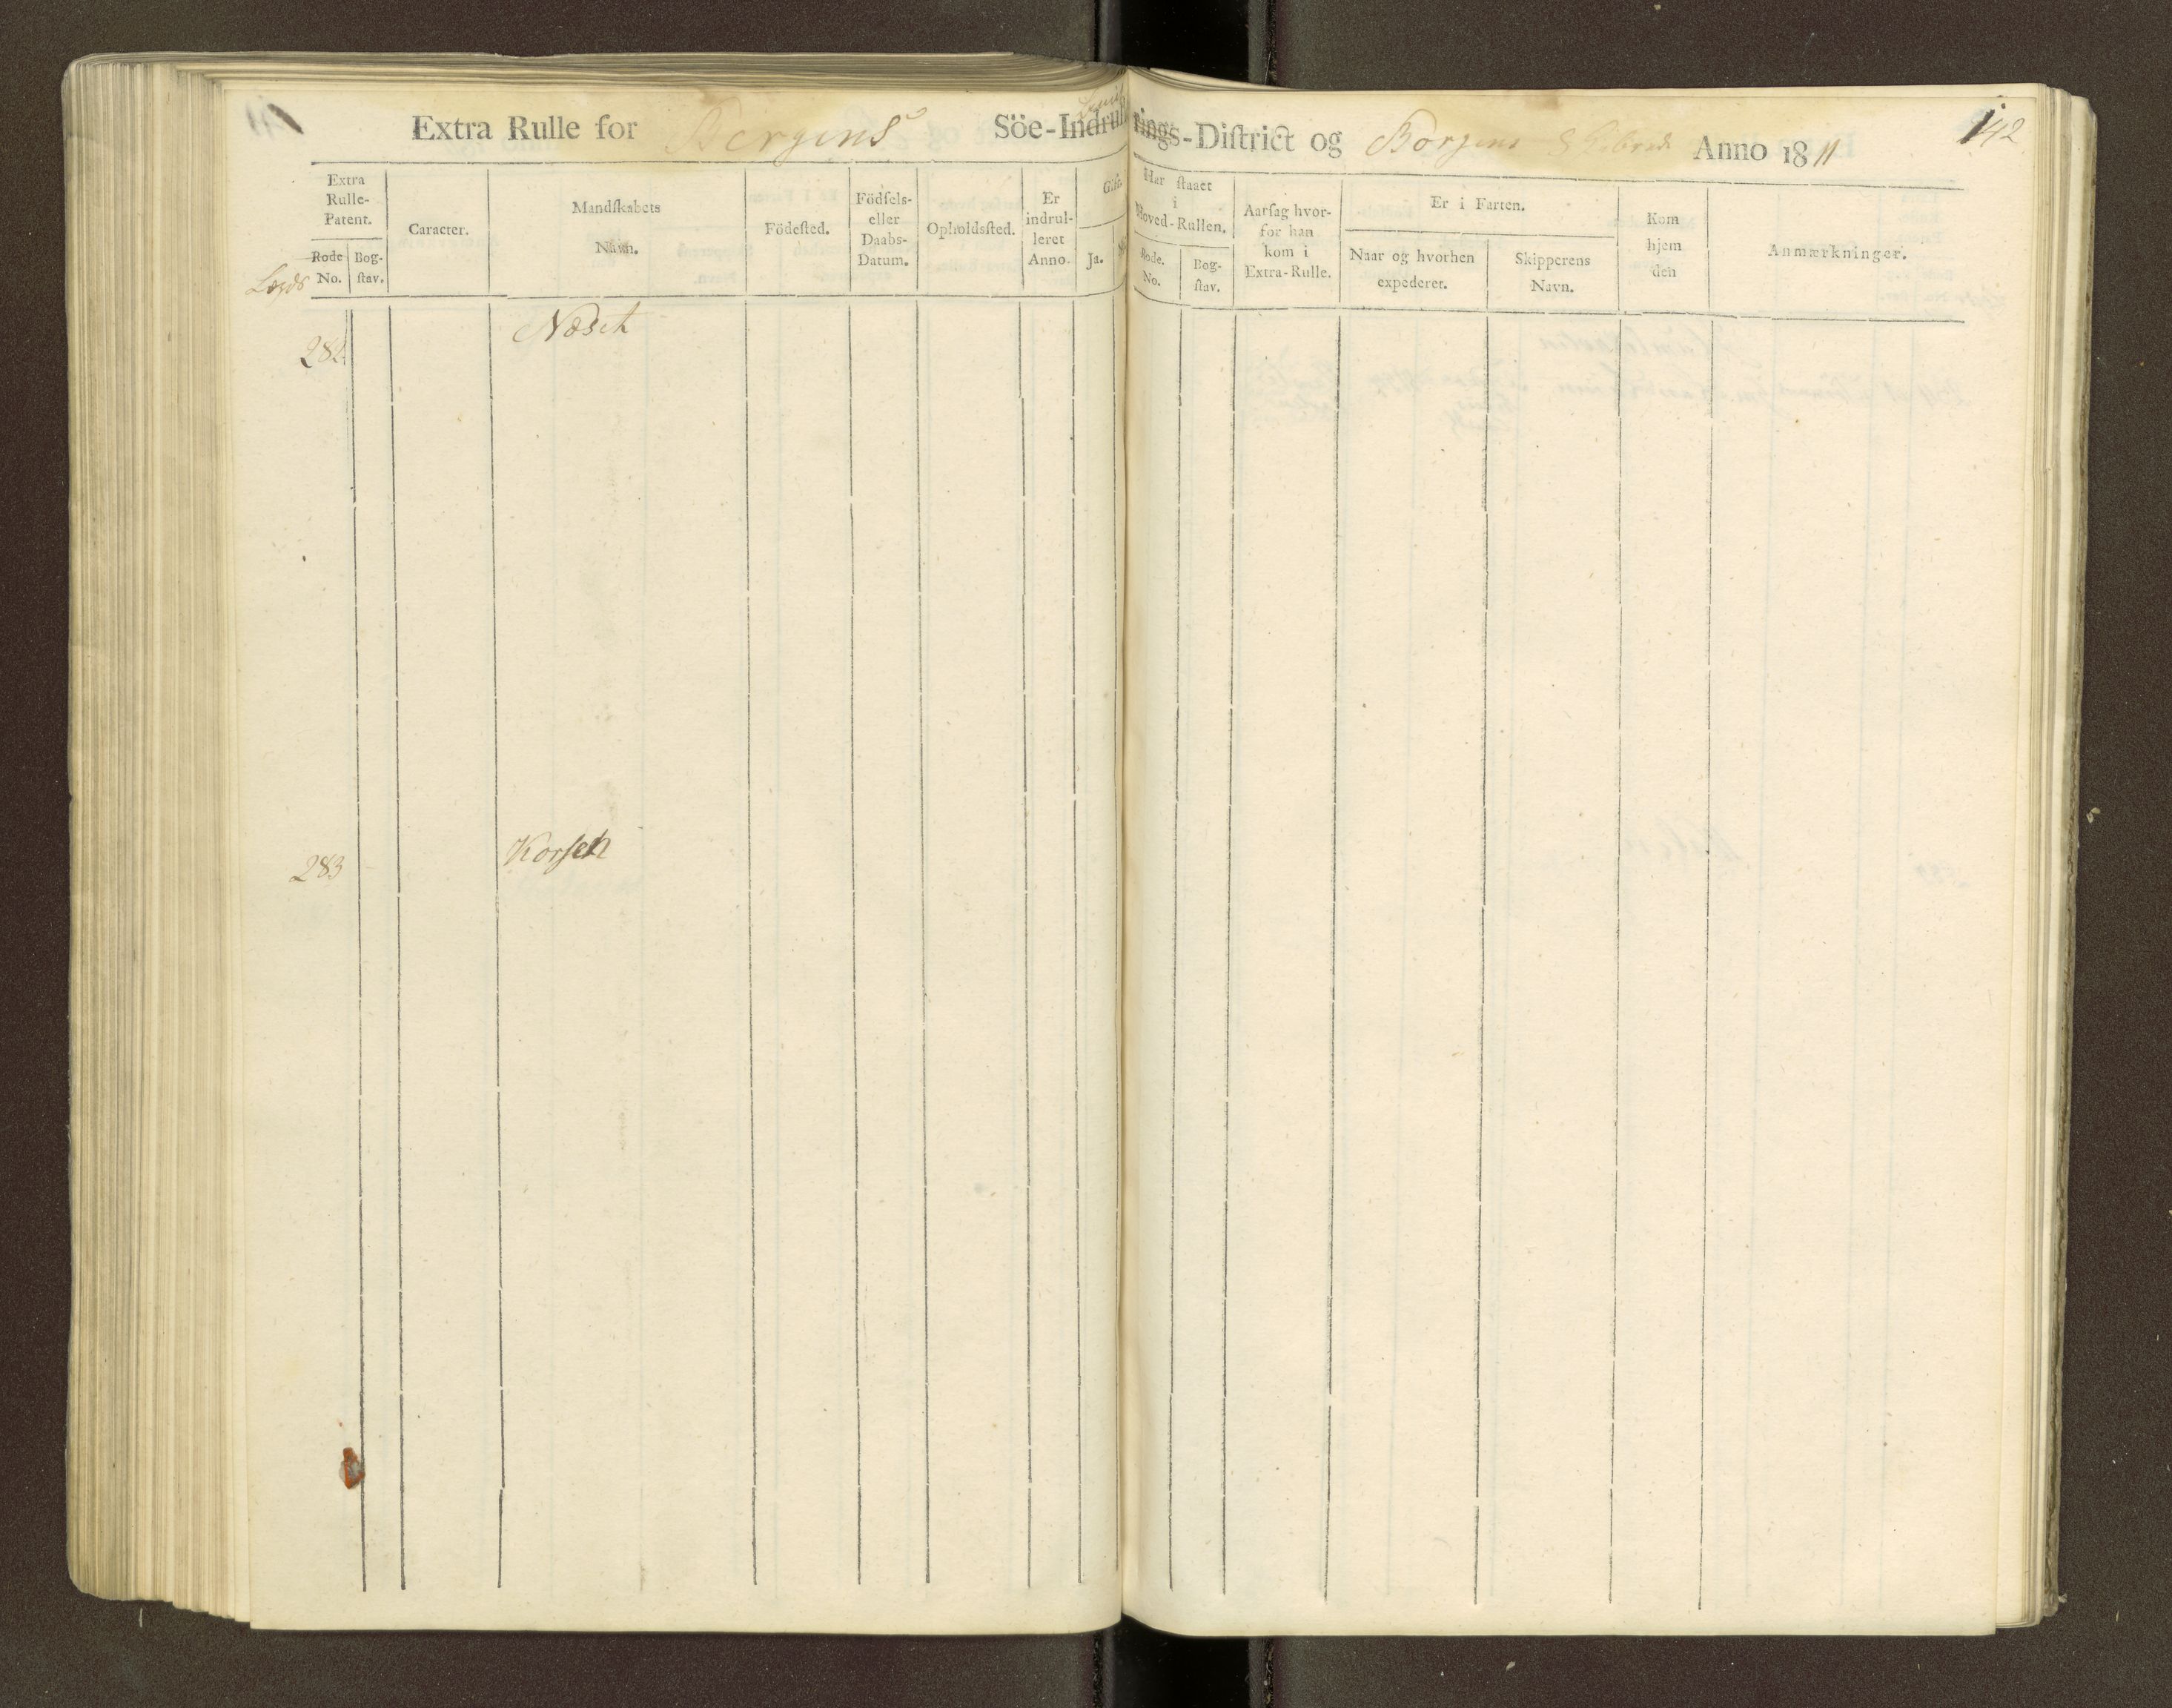 Extra Rulle for Bergens Söe-Indrullerings-Diſtrict og Borgens Anno 1811
142
Extra Rulle-Patent.
Rode No.
Bog-ſtav.
Caracter.
Mandſkabets Navn.
Födeſted.
Födſels- eller Daabs-Datum.
Opholdsſted.
Er indrul-leret Anno.
Ja.
Har ſtaaet i Hoved-Rullen.
Rode. No.
Bog-ſtav.
Aarſag hvor-for han kom i Extra-Rulle.
Er i Farten.
Naar og hvorhen expederet.
Skipperens Navn.
Kom hjem den
Anmærkninger.
Lægds
282
Næset
283
Korſen